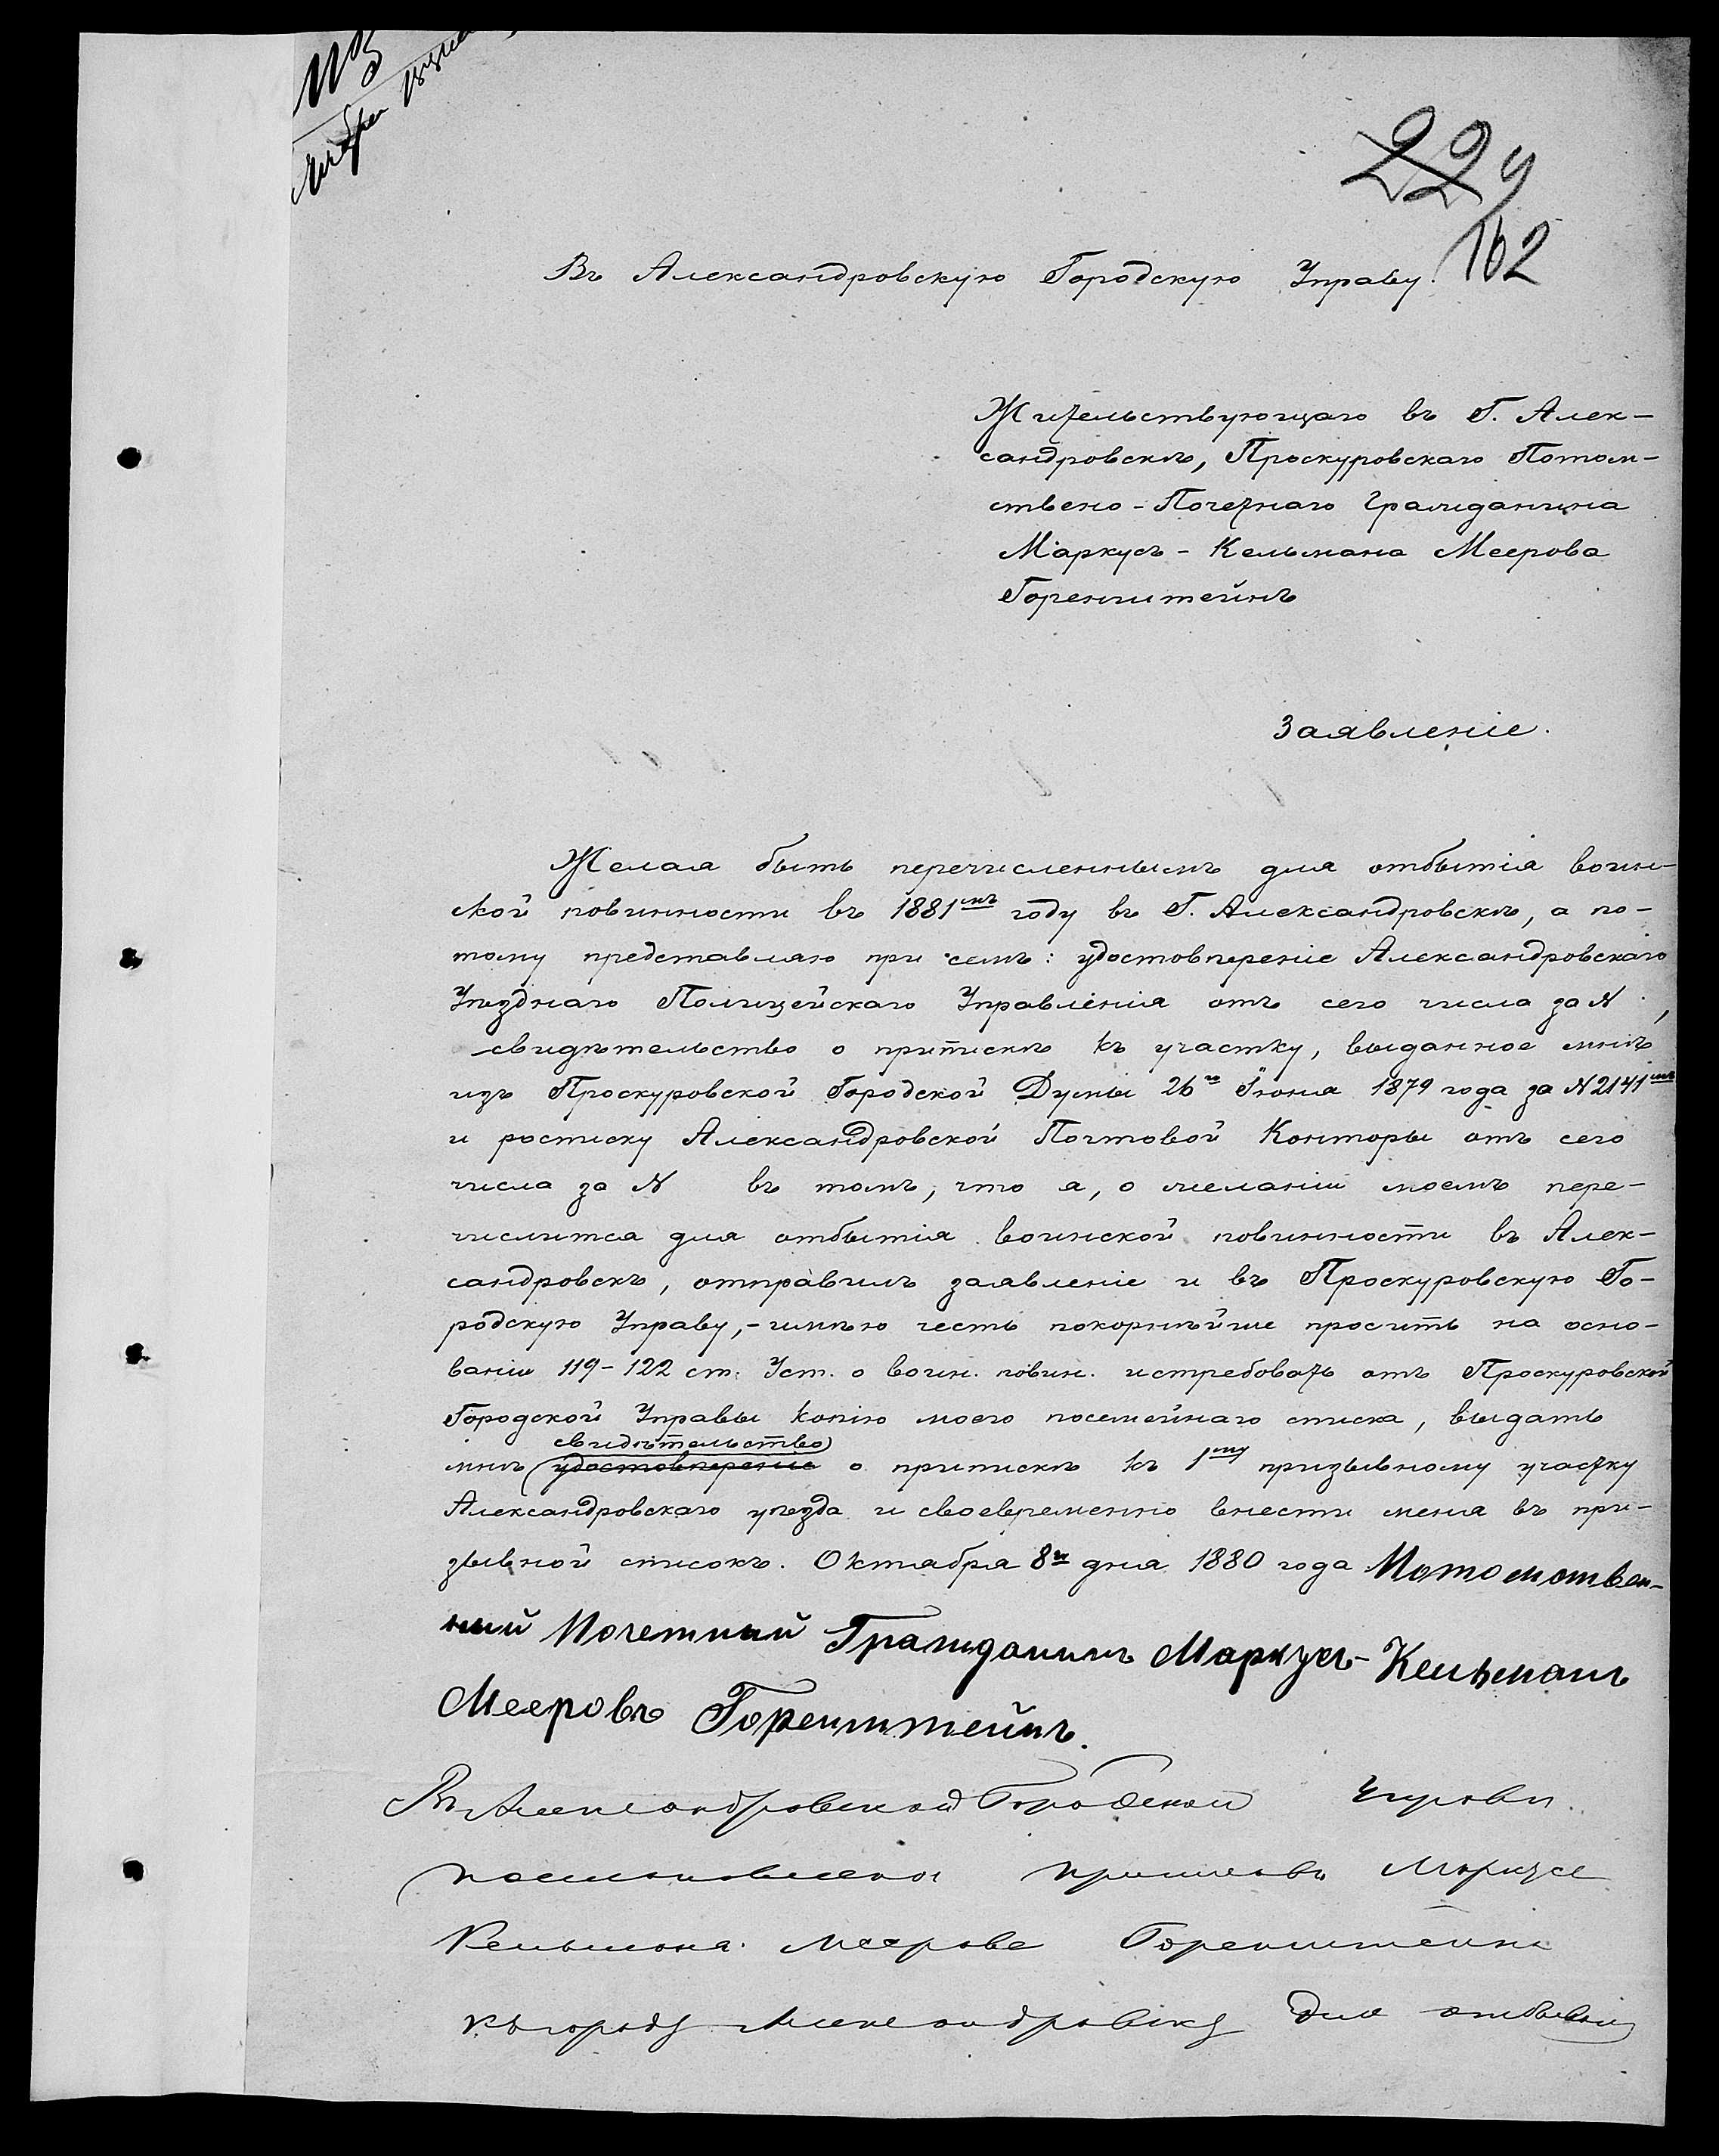 229
162
Въ Александровскую Городскую Управу.
Жительствующаго въ Г. Алек-
сандровскѣ, Проскуровскаго Потом-
ствено-Почетнаго Гражданина
Маркусъ-Кельмана Меерова
Горенштейнъ
Заявленіе.
Желая быть перечисленнымъ для отбытія воин-
ской повинности въ 1881мъ году въ Г. Александровскѣ, а по-
тому представляю при семъ: удостовѣреніе Александровскаго
Уѣзднаго Полицейскаго Управленія отъ сего числа за N ,
свидѣтельство о припискѣ къ участку, выданное мнѣ
изъ Проскуровской Городской Думы 26го Іюня 1879 года за N2141мъ
и росписку Александровской Почтовой Конторы отъ сего
числа за N въ томъ, что я, о желаніи моемъ пере-
числится для отбытія воинской повинности въ Алек-
сандровскъ, отправилъ заявленіе и въ Проскуровскую Го-
родскую Управу,-имѣю честь покорнѣйше просить на осно-
ваніи 119-122 ст. Уст. о воин. повин. истребовать отъ Проскуровской
Городской Управы копію моего посемейнаго списка, выдать
свидѣтельство
мнѣ удостовѣреніе о припискѣ къ 1му призывному участку
Александровскаго уѣзда и своевременно внести меня въ при-
зывной списокъ. Октября 8го дня 1880 года Потомствен-
ный Почетный Гражданинъ Маркусъ-Кельманъ
Мееровъ Горенштейнъ.
Въ Александровской Городской Управы
постановлено Маркуса
Кельмана Меерова Горенштейна
къ городу Александровску для отбыванія